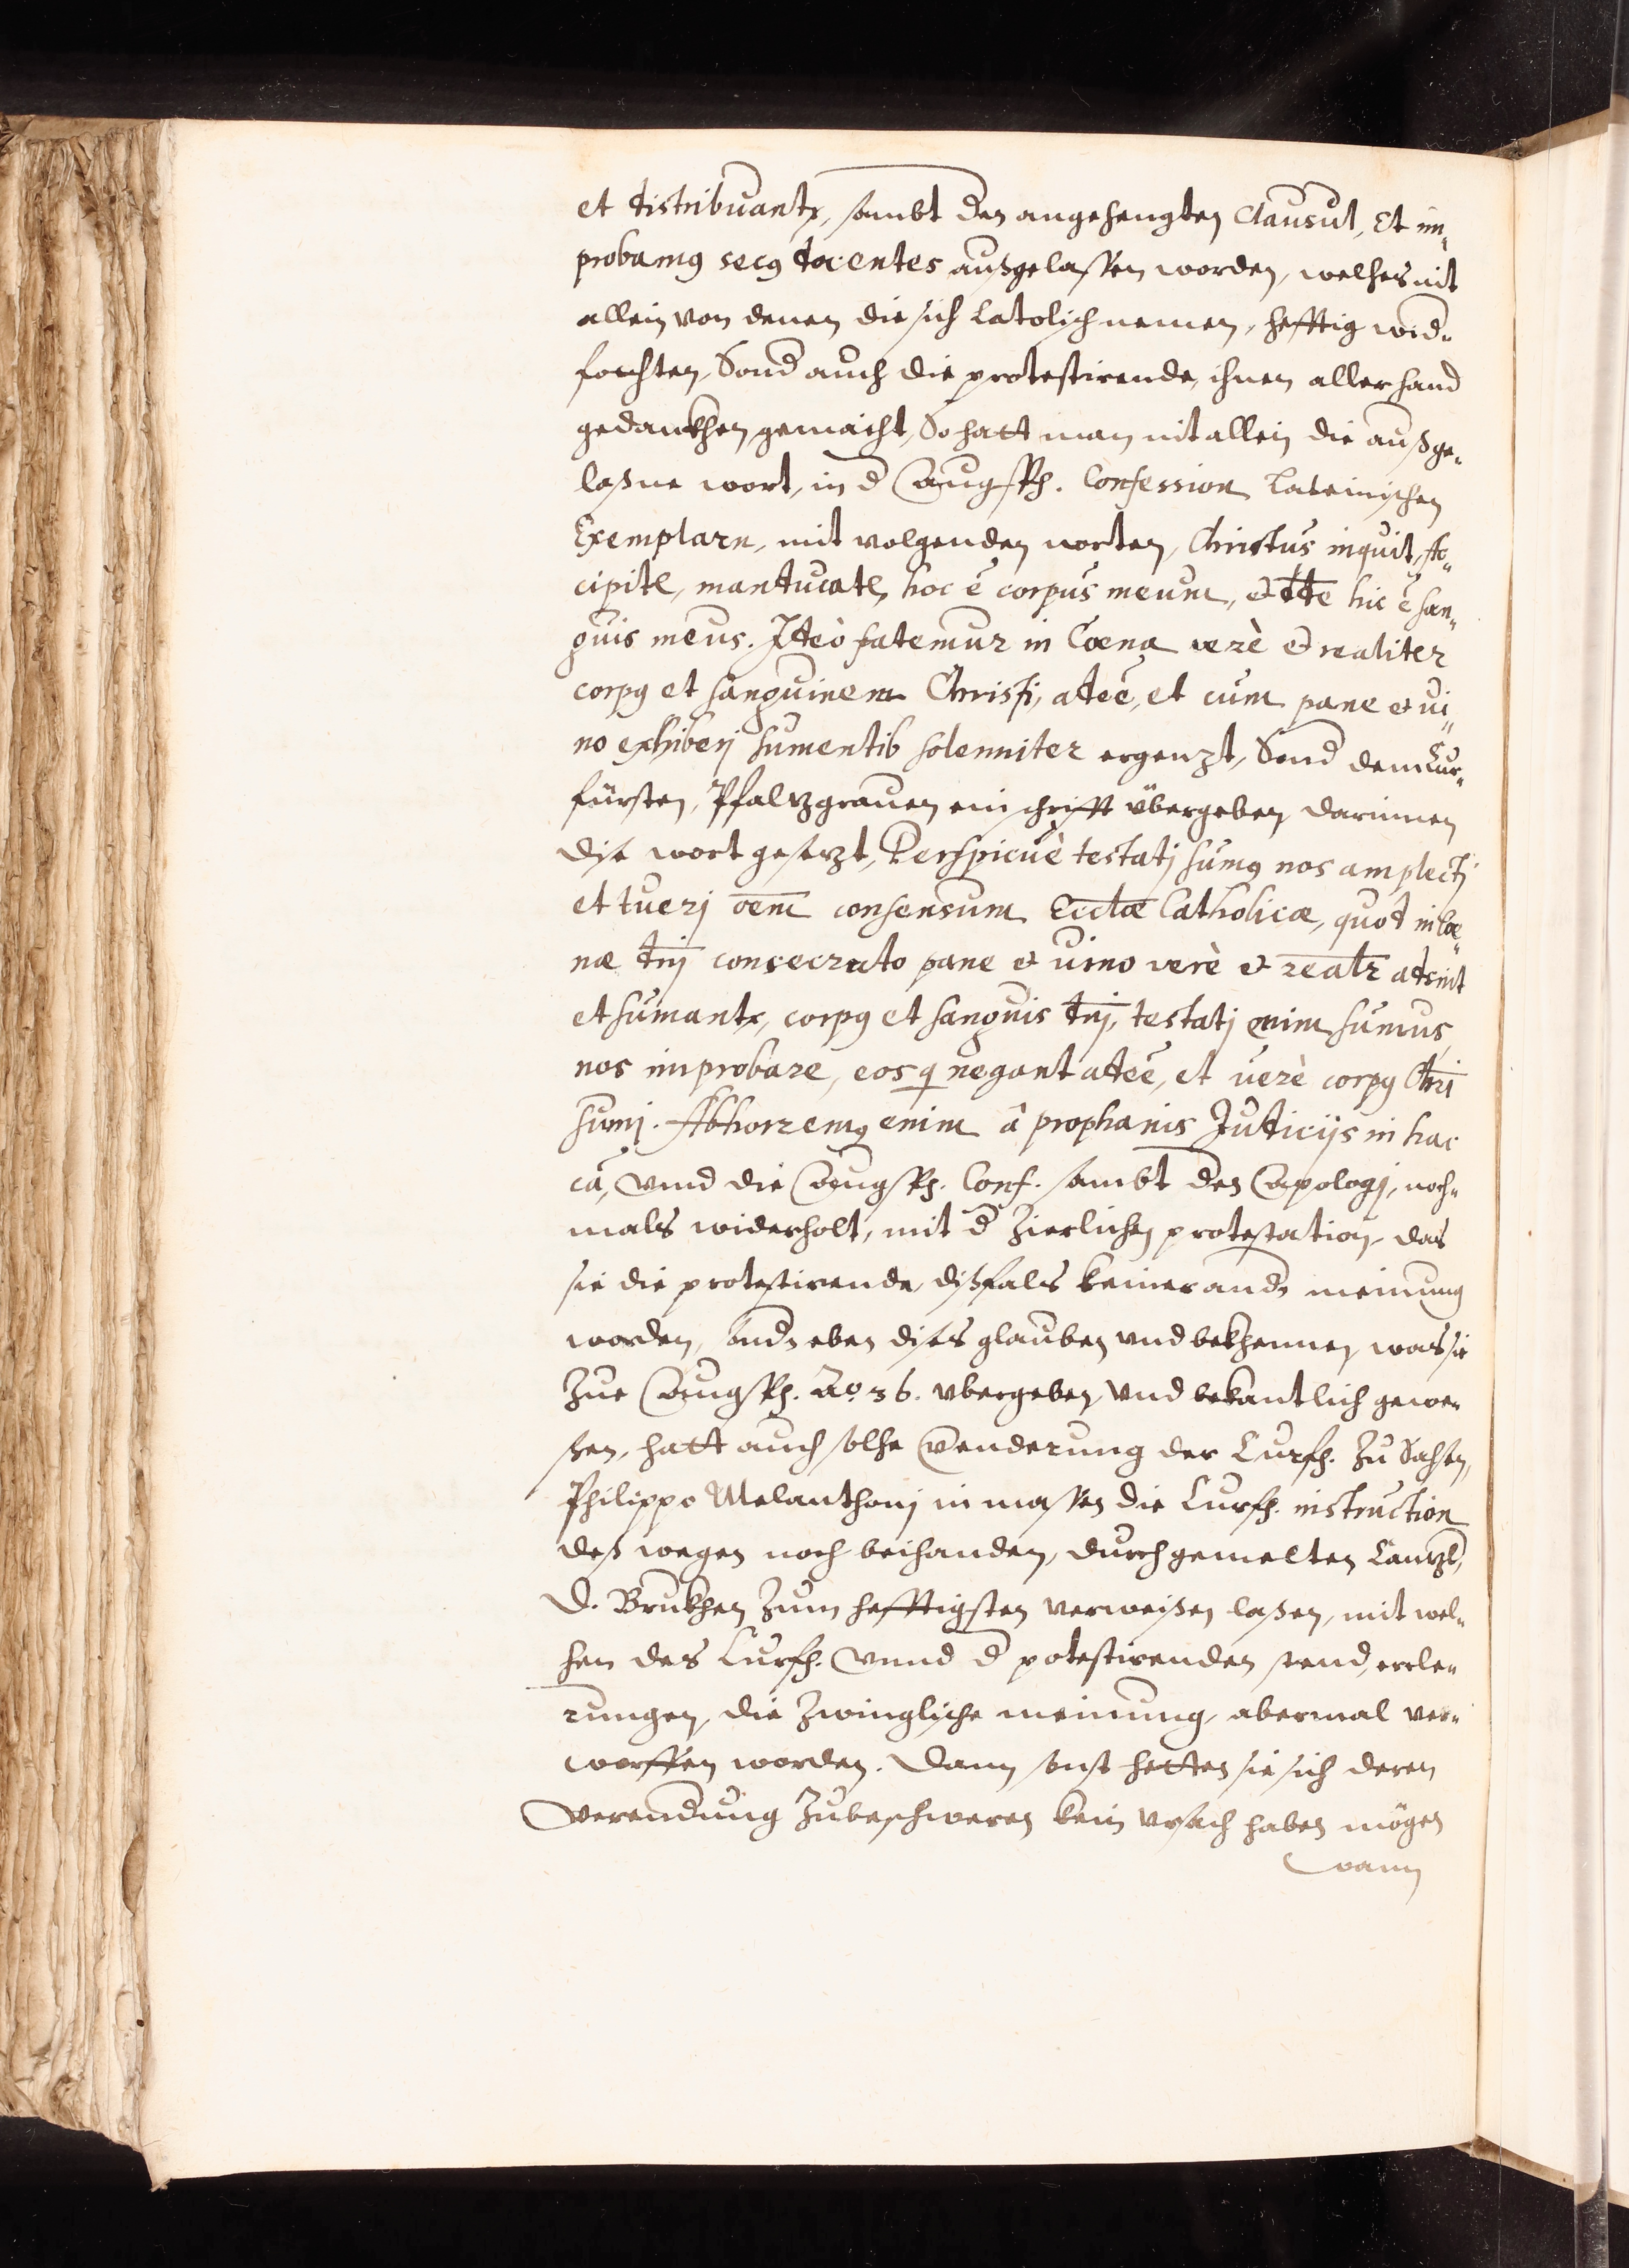 et distribuantr, sambt der angehengten Clausul, Et im„
probamq secq docentes außgelassen worden, welhes nit
allein von denen die sich Catolisch nennen, hefftig wid„
fochten, Sond auch die protestirende, ihnen allerhand
gedankhen gemacht, So hatt man nit allein die außge„
laßne wort, in d Augsp. Confession Lateinischen
Exemplarn, mit volgenden worten, Christus inquit, Ac„
cipite, manducate, hoc ē corpus meum, et hic ē san„
guis meus. Ideò fatemur in Coena verè et realiter
corpq et sanguinem Christi, adeē, et cum pane et vi„
no exhiberj sumentib solenniter ergenzt, Sond dem Cur„
fürsten, Pfaltzgrauen ein schrifft übergeben darinnen
dise wort gesetzt, Perspicuè testatj sumq nos amplectj
et tuerj oēm consensum Eccłæ Catholicæ, quod in Coe„
næ dnj consecrato pane et vino verè et realr adsint
et sumantr, corpq et sanguis dnj, testatj enim sumus
nos improbare, eos q negant adeē, et verè corpq Chri
sumj. Abhorremq enim â prophanis Judicijs in hac
cā, vnnd die Augsp. Conf. sambt der Apologj, noch„
mals widerholt, mit d zierlichen protestation, das
sie die protestirende, dißfals keiner and meinung
worden, sond eben dises glauben vnd bekhennen, was sie
zue Augsp. Ao. 36. vbergeben vnd bekantlich gewe„
ßen, hatt auch solhe Venderung der Curfh. zu Sahsen,
Philippo Melanthonj in massen die Curfh. instruction
deß wegen noch beihanden, durch gemelten Cantzl,
D. Brukhen zum hefftigsten verweißen laßen, mit wel„
hen des Curfh. vnnd d potestirenden stend, ercle„
rungen, die Zwinglische meinung, abermal ver„
worffen worden. Dann sonst hetten sie sich deren
Verendung zubeschweren kein vrsach haben mögen
wann